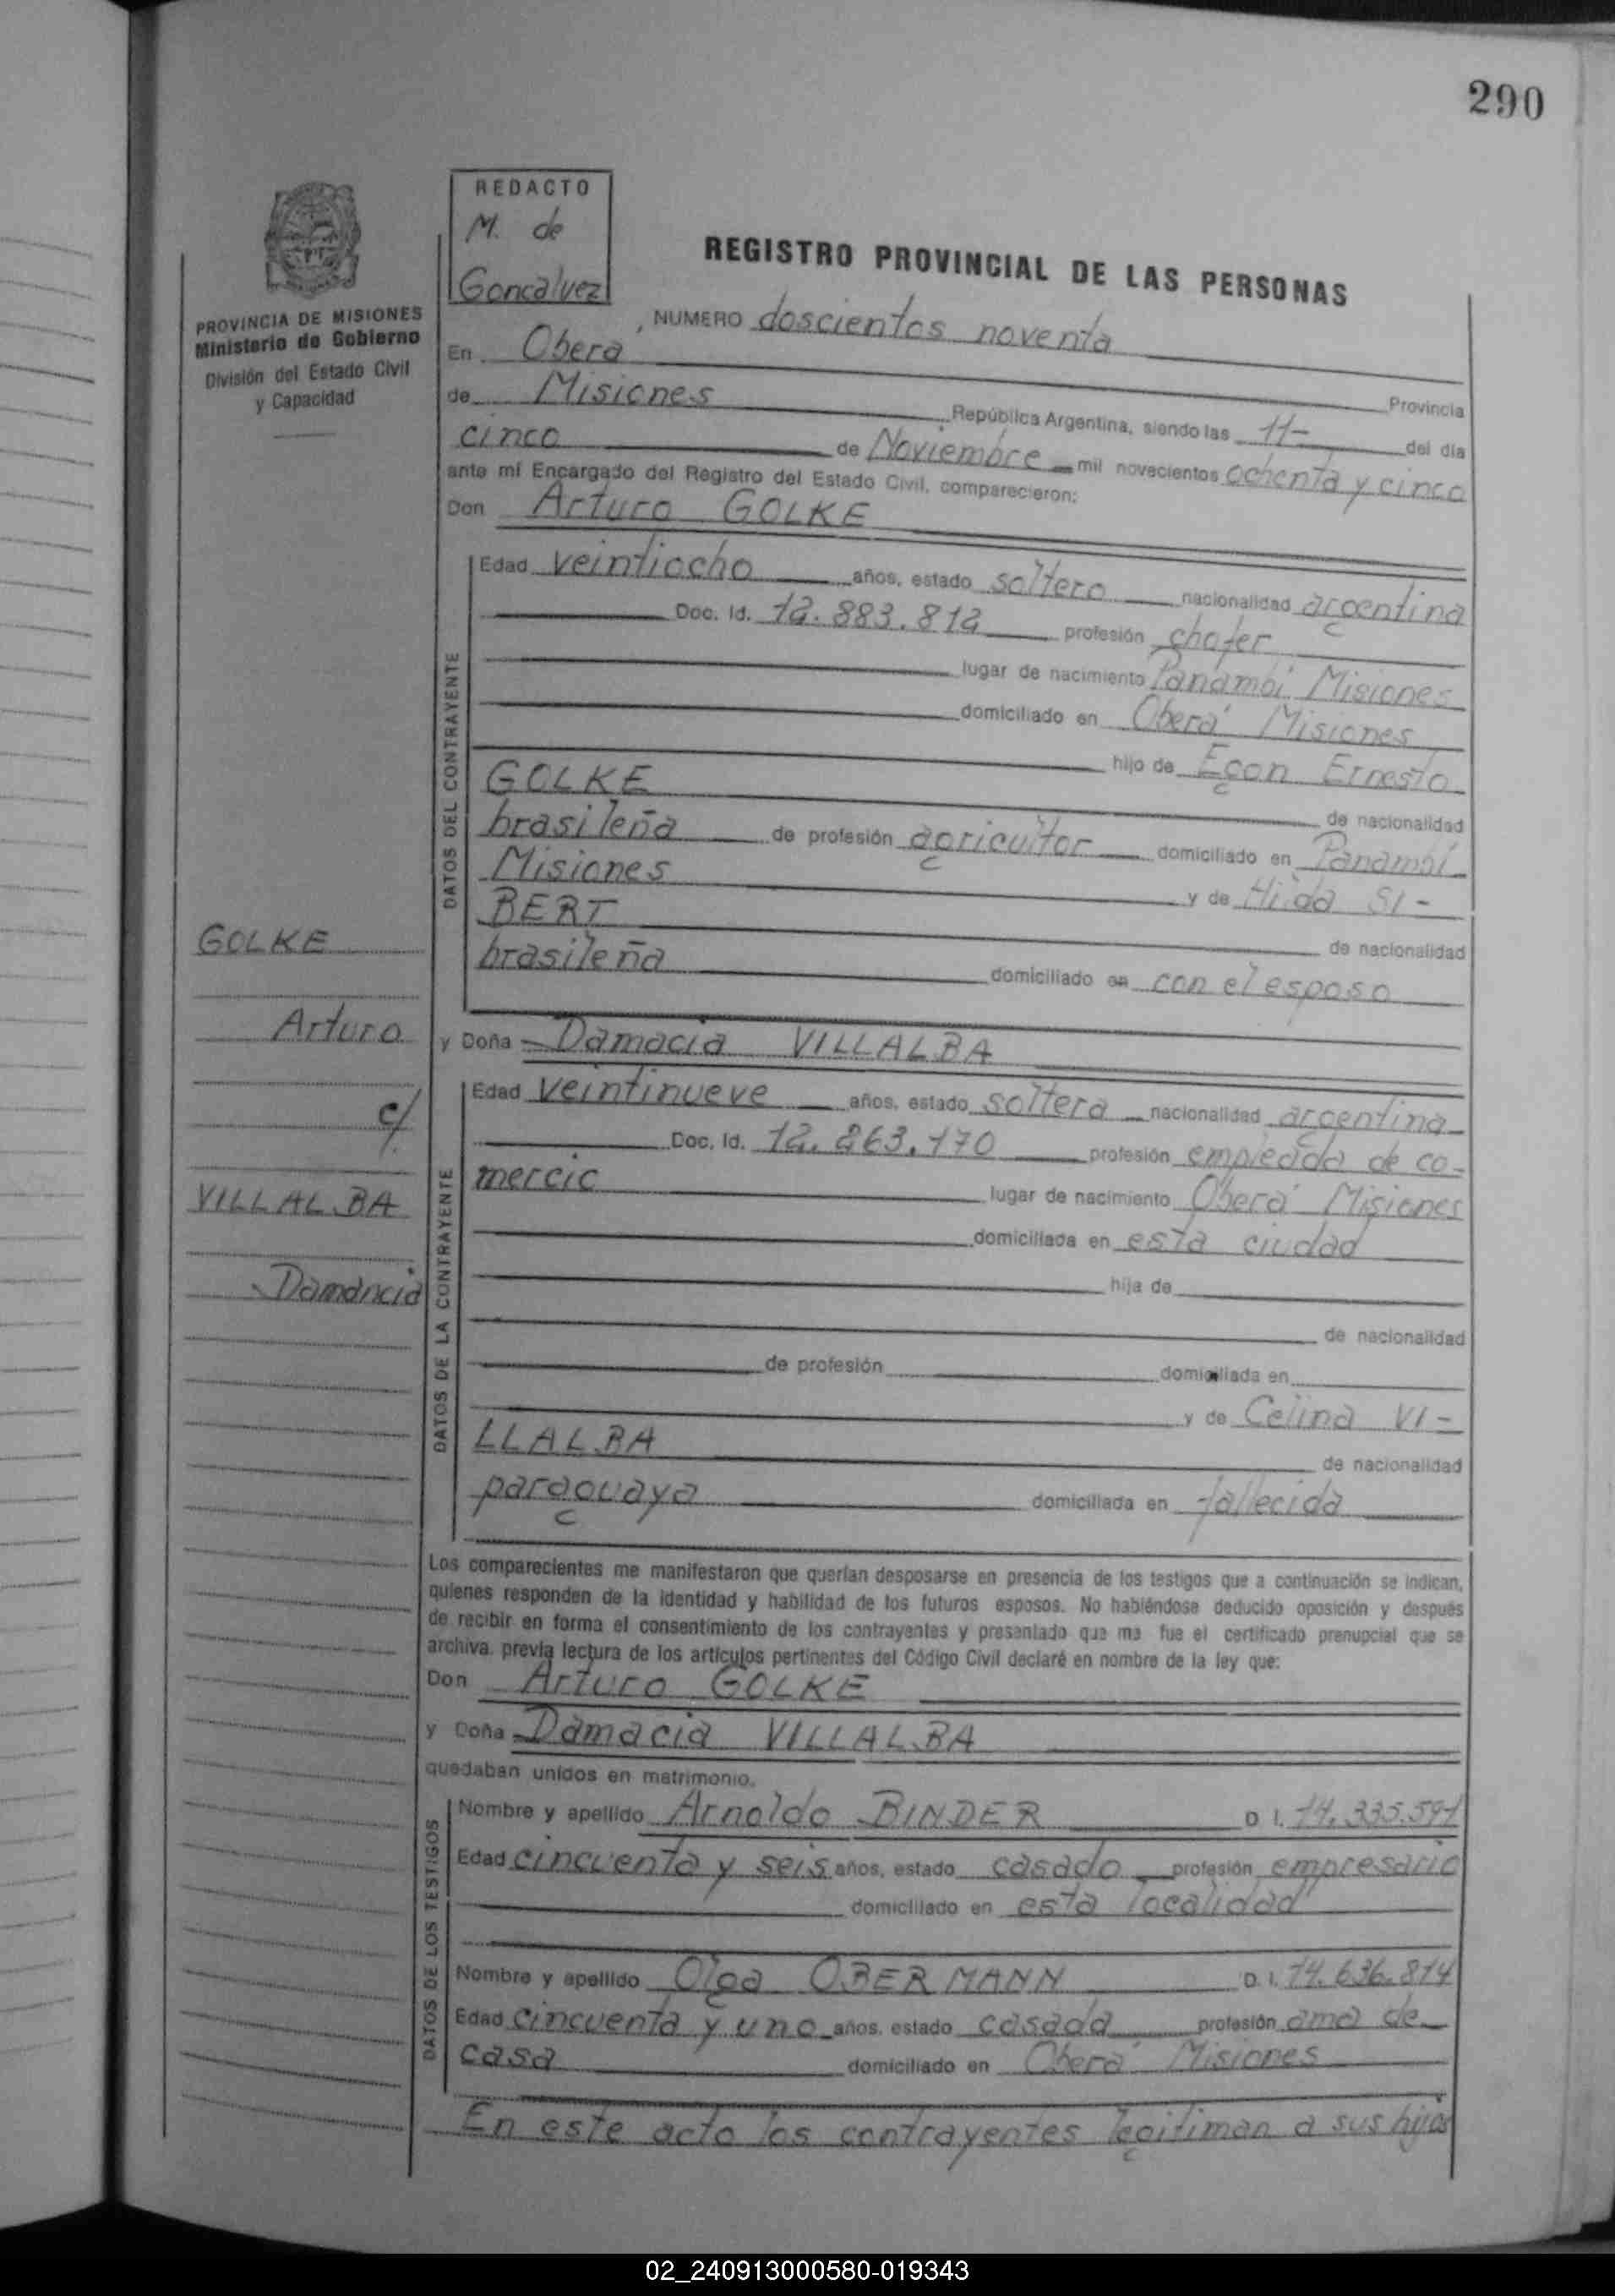 290
REDACTO
M. de
Goncalvez
PROVINCIA DE MISIONES
Ministerio de Gobierno
División del Estado Civil
y Capacidad
REGISTRO PROVINCIAL DE LAS PERSONAS
, NUMERO doscientos noventa
En Obera
Provincia
de Misiones República Argentina, siendo las 11- del día
cinco de Noviembre mil novecientos ochenta y cinco
ante mí Encargado del Registro del Estado Civil, comparecieron:
Don Arturo GOLKE
DATOS DEL CONTRAYENTE
Edad veintiocho años, estado soltero nacionalidad argentina
Doc. Id. 12.883.812 profesión chofer
lugar de nacimiento Panambí Misiones
domiciliado en Oberá Misiones
hijo de Egon Ernesto
GOLKE de nacionalidad
brasileña de profesión agricultor domiciliado en Panambí
Misiones y de Hilda SI-
BERT de nacionalidad
brasileña domiciliado en con el esposo
GOLKE
Arturo
c/.
VILLALBA
Damancia
y Doña Damacia VILLALBA
DATOS DE LA CONTRAYENTE
Edad veintinueve años, estado soltera nacionalidad argentina
Doc. Id. 12.263.170 profesión empleada de co-
mercio lugar de nacimiento Oberá Misiones
domiciliada en esta ciudad
hija de
de nacionalidad
de profesión domiciliada en
y de Celina VI-
LLALBA de nacionalidad
paraguaya domiciliada en fallecida
Los comparecientes me manifestaron que querían desposarse en presencia de los testigos que a continuación se indican,
quienes responden de la identidad y habilidad de los futuros esposos. No habiéndose deducido oposición y después
de recibir en forma el consentimiento de los contrayentes y presentado que me fue el certificado prenupcial que se
archiva, previa lectura de los artículos pertinentes del Código Civil declaré en nombre de la ley que:
Don Arturo GOLKE
y Doña Damacia VILLALBA
quedaban unidos en matrimonio.
DATOS DE LOS TESTIGOS
Nombre y apellido Arnoldo BINDER D. I. 14.335.591
Edad cincuenta y seis años, estado casado profesión empresario
domiciliado en esta localidad
Nombre y apellido Olga OBERMANN D. I. 14.636.814
Edad cincuenta y uno años, estado casada profesión ama de
casa domiciliado en Oberá Misiones
En este acto los contrayentes legitiman a sus hijos
02_240913000580-019343